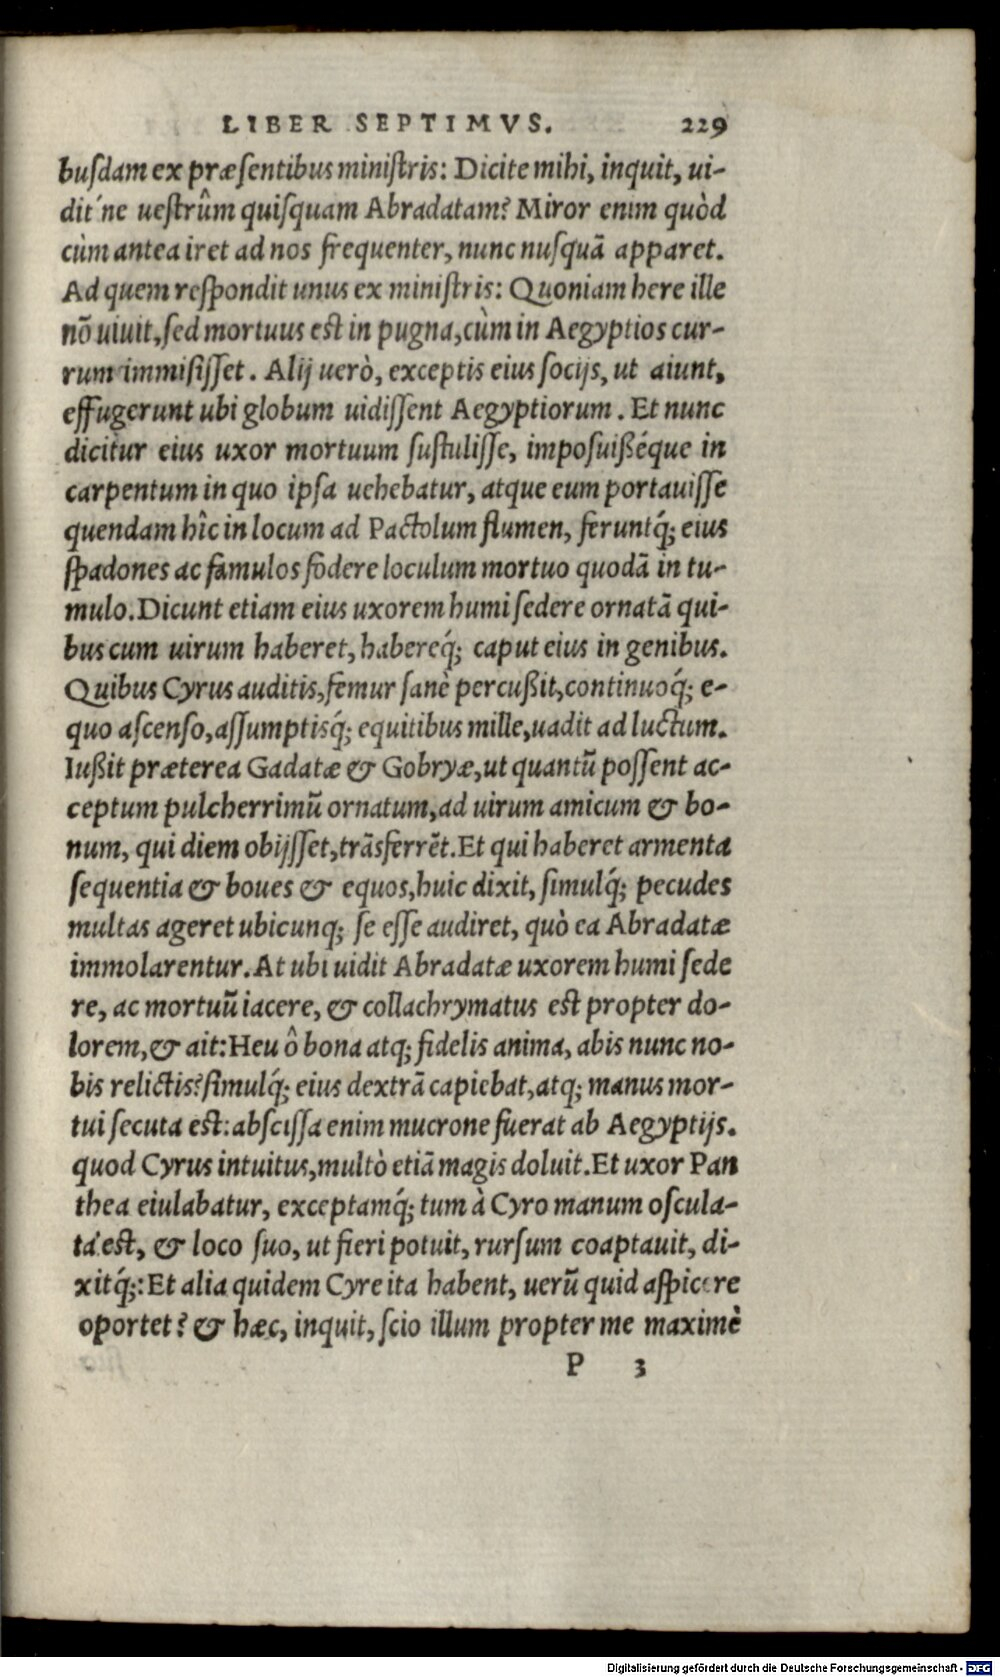 LIBER SEPTIMVS. 229
busdam ex præsentibus ministris: Dicite mihi, inquit, ui-
dit'ne uestrûm quisquam Abradatam? Miror enim quòd
cùm antea iret ad nos frequenter, nunc nusquã apparet.
Ad quem respondit unus ex ministris: Quoniam here ille
nõ uiuit, sed mortuus est in pugna, cùm in Aegyptios cur-
rum immisisset. Alij uerò, exceptis eius socijs, ut aiunt,
effugerunt ubi globum uidissent Aegyptiorum. Et nunc
dicitur eius uxor mortuum sustulisse, imposuißéque in
carpentum in quo ipsa uehebatur, atque eum portauisse
quendam hîc in locum ad Pactolum flumen, feruntq́; eius
spadones ac famulos fodere loculum mortuo quodã in tu-
mulo. Dicunt etiam eius uxorem humi sedere ornatã qui-
bus cum uirum haberet, habereq́; caput eius in genibus.
Quibus Cyrus auditis, femur sanè percußit, continuoq́; e-
quo ascenso, assumptisq́; equitibus mille, uadit ad luctum.
Iußit præterea Gadatæ & Gobryæ, ut quantũ possent ac-
ceptum pulcherrimũ ornatum, ad uirum amicum & bo-
num, qui diem obijsset, trãsferrẽt. Et qui haberet armenta
sequentia & boues & equos, huic dixit, simulq́; pecudes
multas ageret ubicunq; se esse audiret, quò ea Abradatæ
immolarentur. At ubi uidit Abradatæ uxorem humi sede
re, ac mortuũ iacere, & collachrymatus est propter do-
lorem, & ait: Heu ô bona atq; fidelis anima, abis nunc no-
bis relictis? simulq́; eius dextrã capiebat, atq; manus mor-
tui secuta est: abscissa enim mucrone fuerat ab Aegyptijs.
quod Cyrus intuitus, multò etiã magis doluit. Et uxor Pan
thea eiulabatur, exceptamq́; tum à Cyro manum oscula-
ta'est, & loco suo, ut fieri potuit, rursum coaptauit, di-
xitq́;: Et alia quidem Cyre ita habent, uerũ quid aspicere
oportet? & hæc, inquit, scio illum propter me maximè
P 3
Digitalisierung gefördert durch die Deutsche Forschungsgemeinschaft - DFG